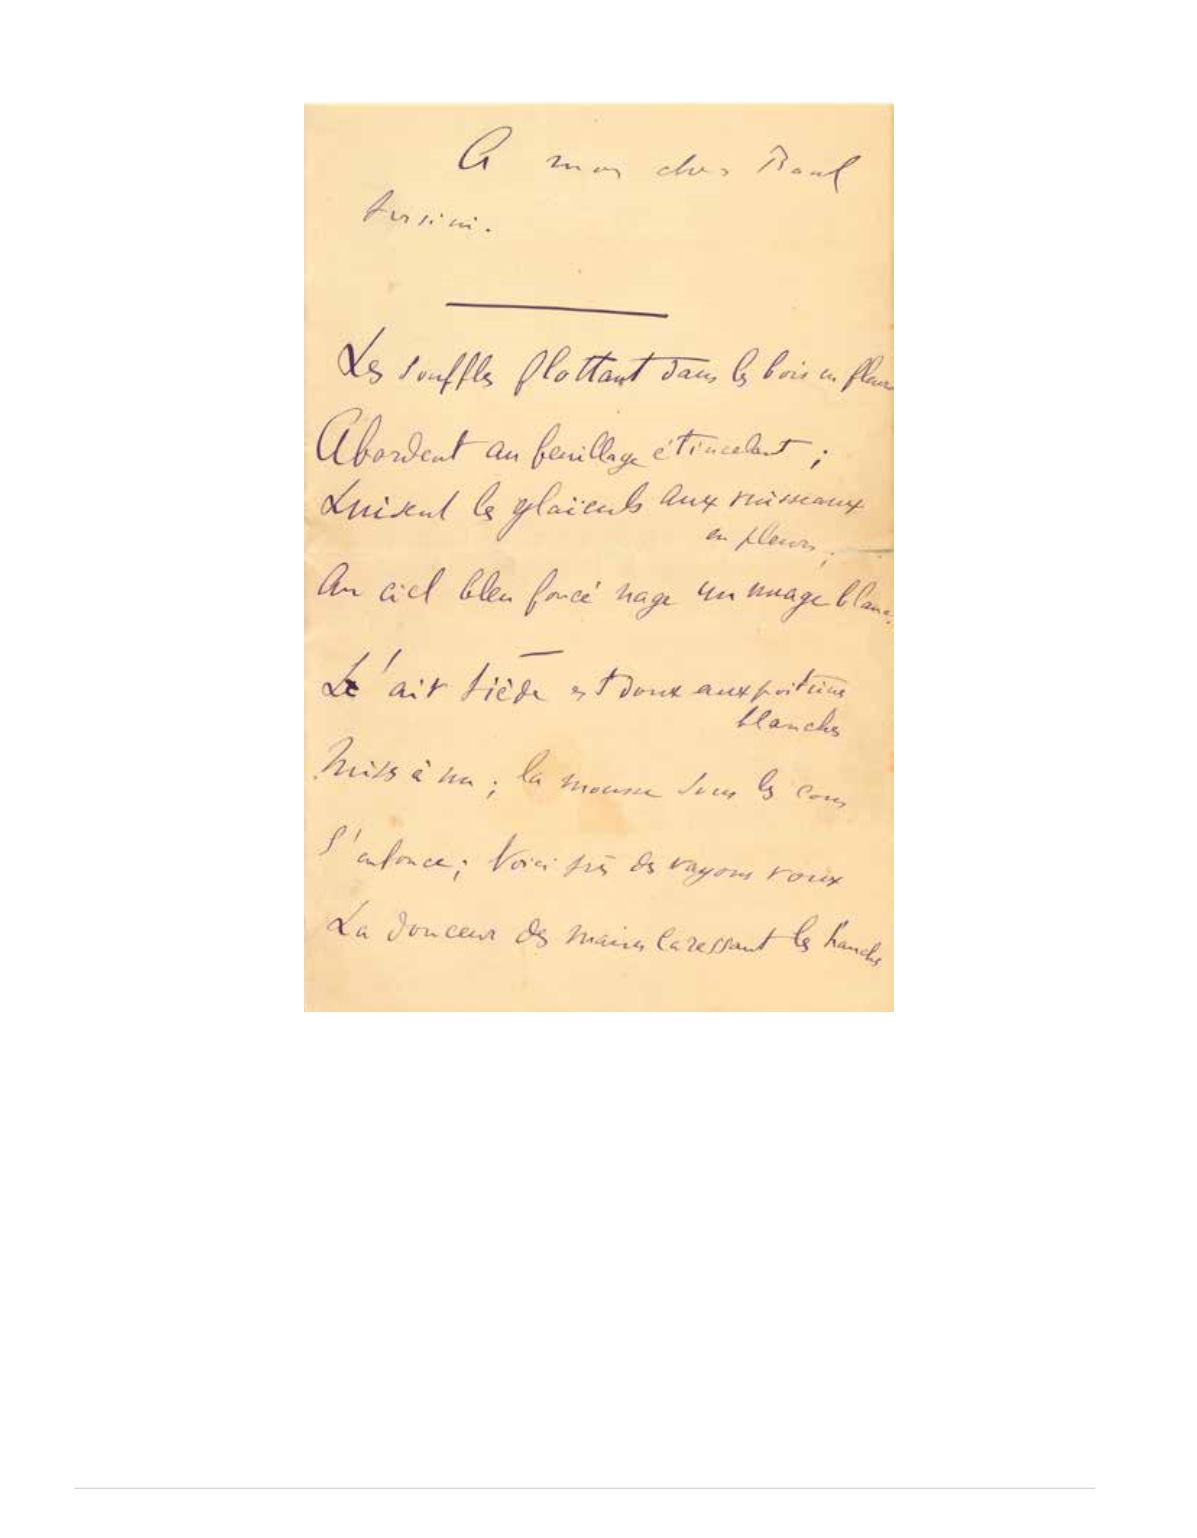 A mon cher Raoul
Les souffles flottant dans les bois en fleurs
Abordent au feuillage étincelant ;
Luisent les glaïeuls aux ruisseaux
en pleurs ;
Au ciel bleu foncé nage un nuage blanc.
L'air tiède est doux aux poitrines
blanches
Mises à nu ; la mousse sous les cous
S'enfonce ; Voici près des rayons roux
La douceur des mains caressant les hanches